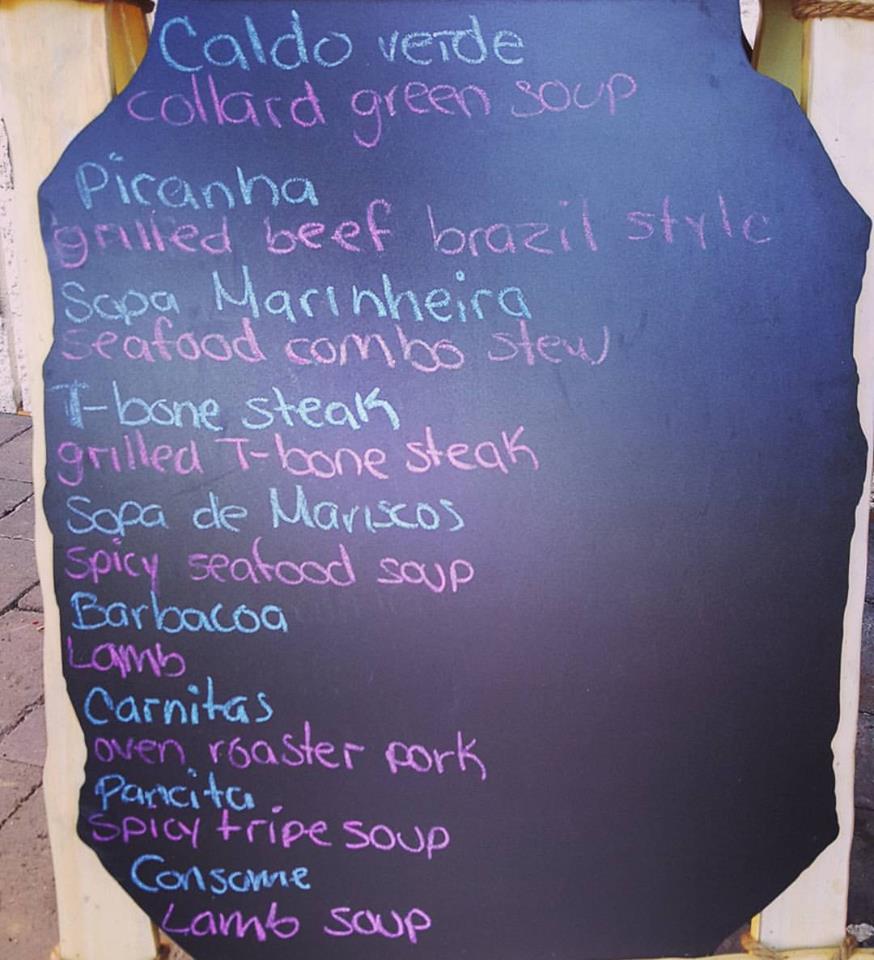 Caldo verde
collard green soup
Picanha
grilled beef brazil style
Sopa Marinheira
seafood combo stew
T-bone steak
grilled T-bone steak
Sopa de Mariscos
Spicy seafood soup
Barbacoa
Lamb
Carnitas
oven roaster pork
Pancita
Spicy tripe soup
Consome
Lamb soup